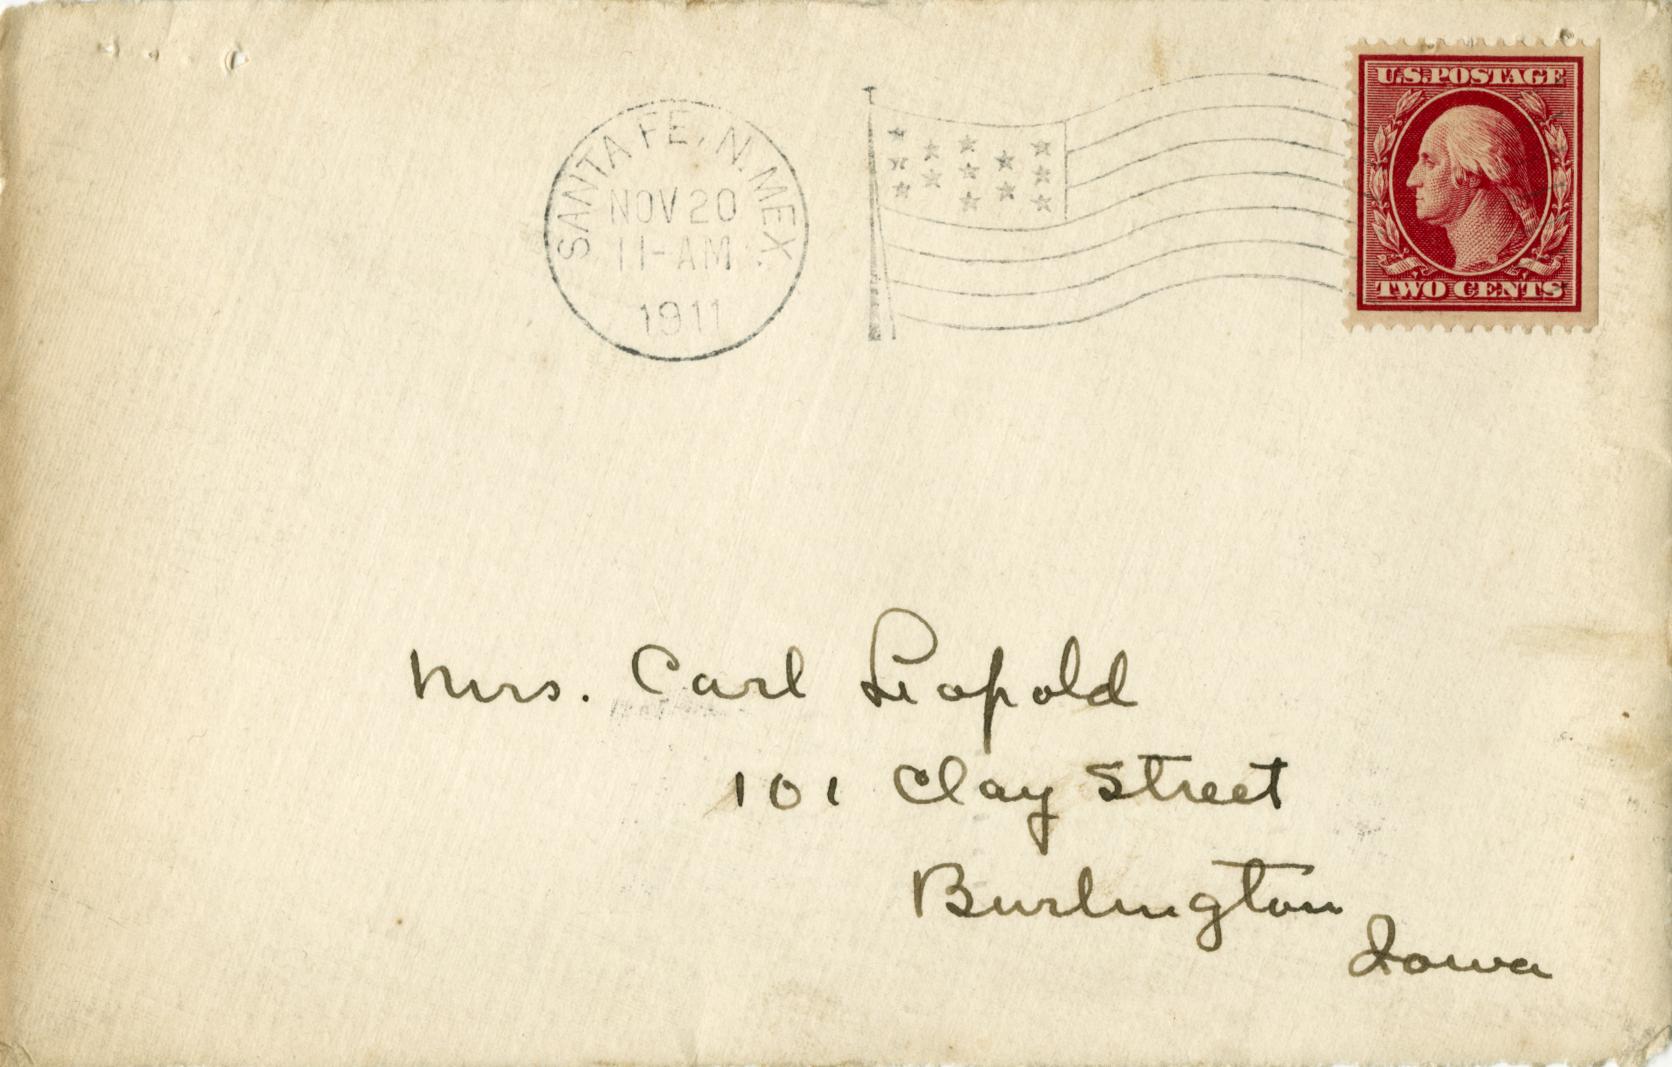 U.S. POSTAGE
TWO CENTS
SANTA FE, N. MEX.
NOV 20
11-AM
1911
Mrs. Carl Leopold
101 Clay Street
Burlington
Iowa